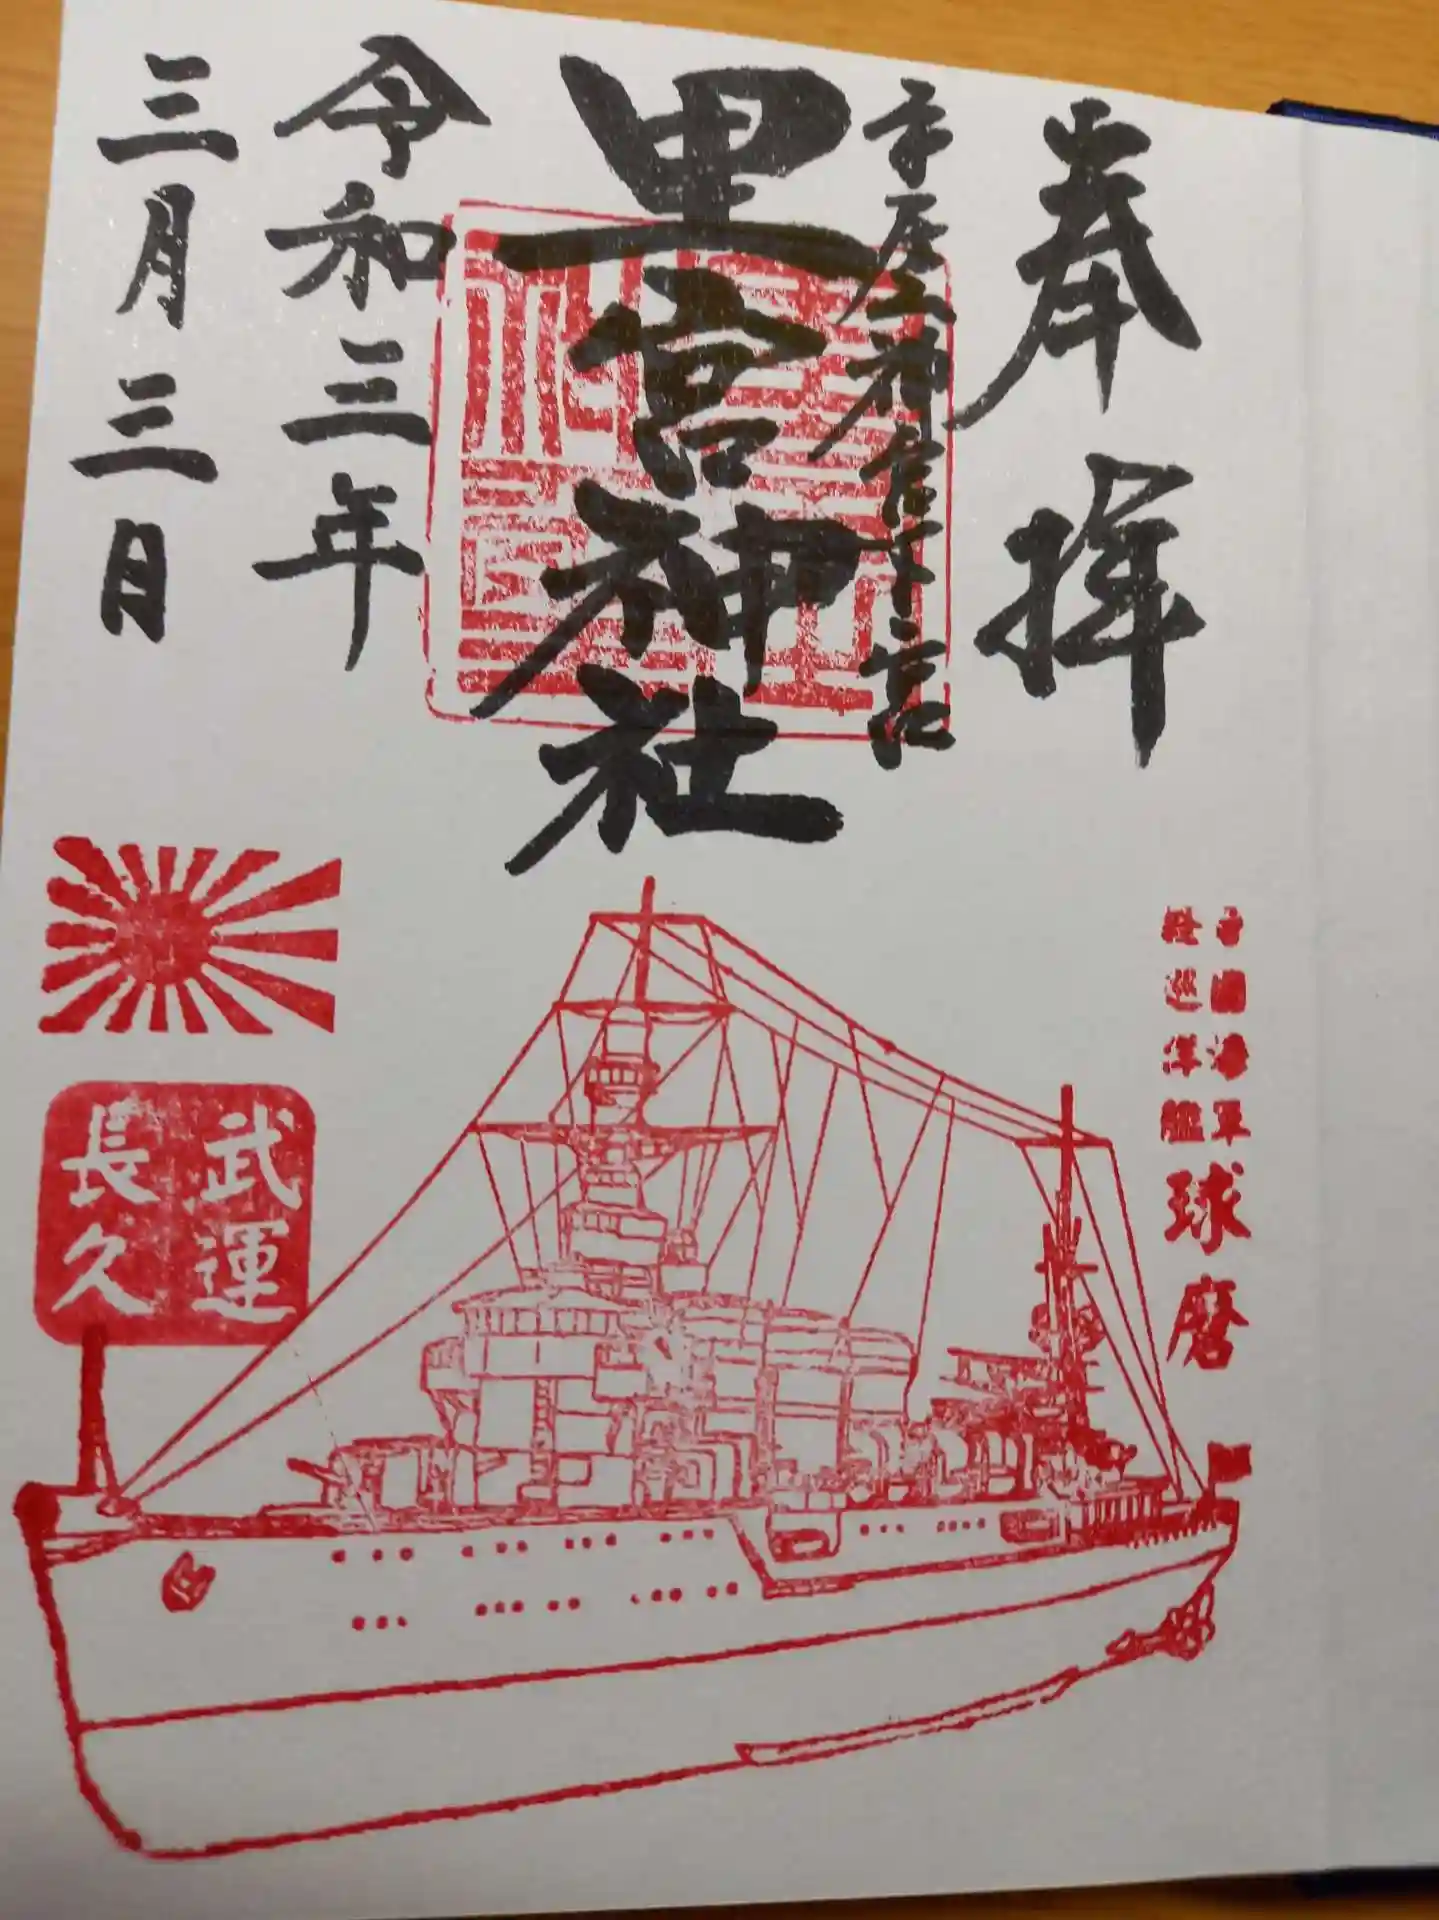 奉拝
市房山神宮
里宮神社
令和三年
三月三日
帝國海軍
軽巡洋艦
球磨
武運
長久